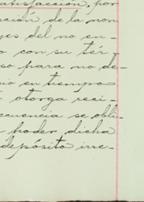 atisfacción, por
ración de la non
yes del no en-
o con su tér-
so para no de-
no en tiempo
otorga reci-
cuencia se obli-
poder dicha
depósito irre-